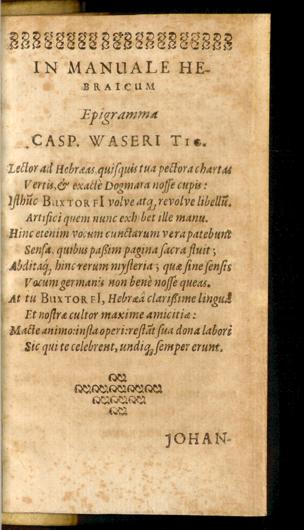 IN MANUALE HE-
BRAICUM
Epigramma
CASP. WASERI TIG.
Lector ad Hebræas quisquis tua pectora chartas
Vertis, & exactè Dogmata nosse cupis:
Isthûc BUXTORFI volve atq; revolve libellũ.
Artifici quem nunc exhibet ille manu.
Hinc etenim vocum cunctarum vera patebunt
Sensa, quibus paßim pagina sacra fluit;
Abditaq; hinc rerum mysteria; quæ sine sensis
Vocum germanis non benè nosse queas.
At tu BUXTORFI, Hebræâ clarißime linguâ
Et nostræ cultor maxime amicitiæ:
Macte animo: insta operi: restãt sua dona labori
Sic qui te celebrent, undiq; semper erunt.
JOHAN-